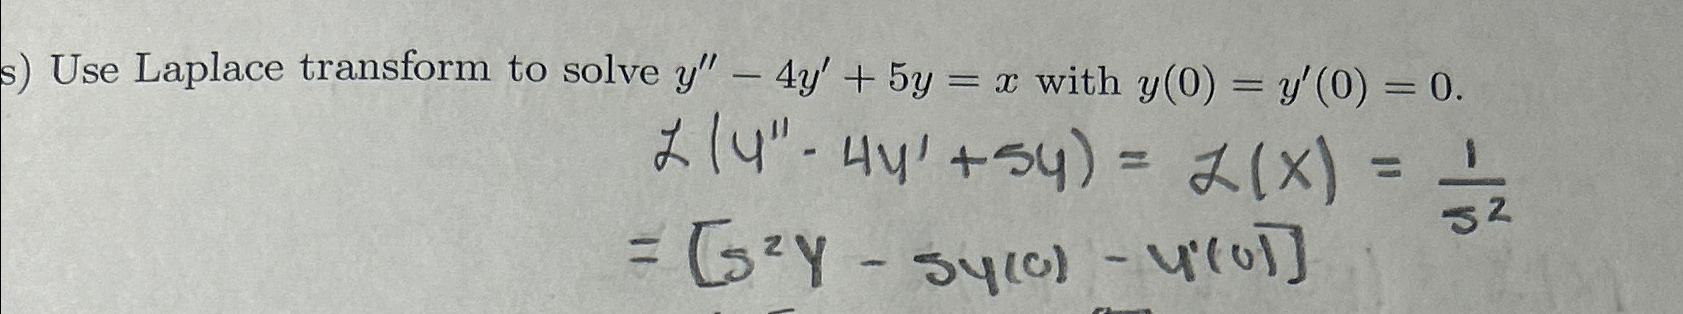 s) Use Laplace transform to solve y'' − 4y' + 5y = x with y(0) = y'(0) = 0.
ℒ(y'' - 4y' + 5y) = ℒ(x) = 1/s²
= [s²Y - sy(0) - y'(0)]